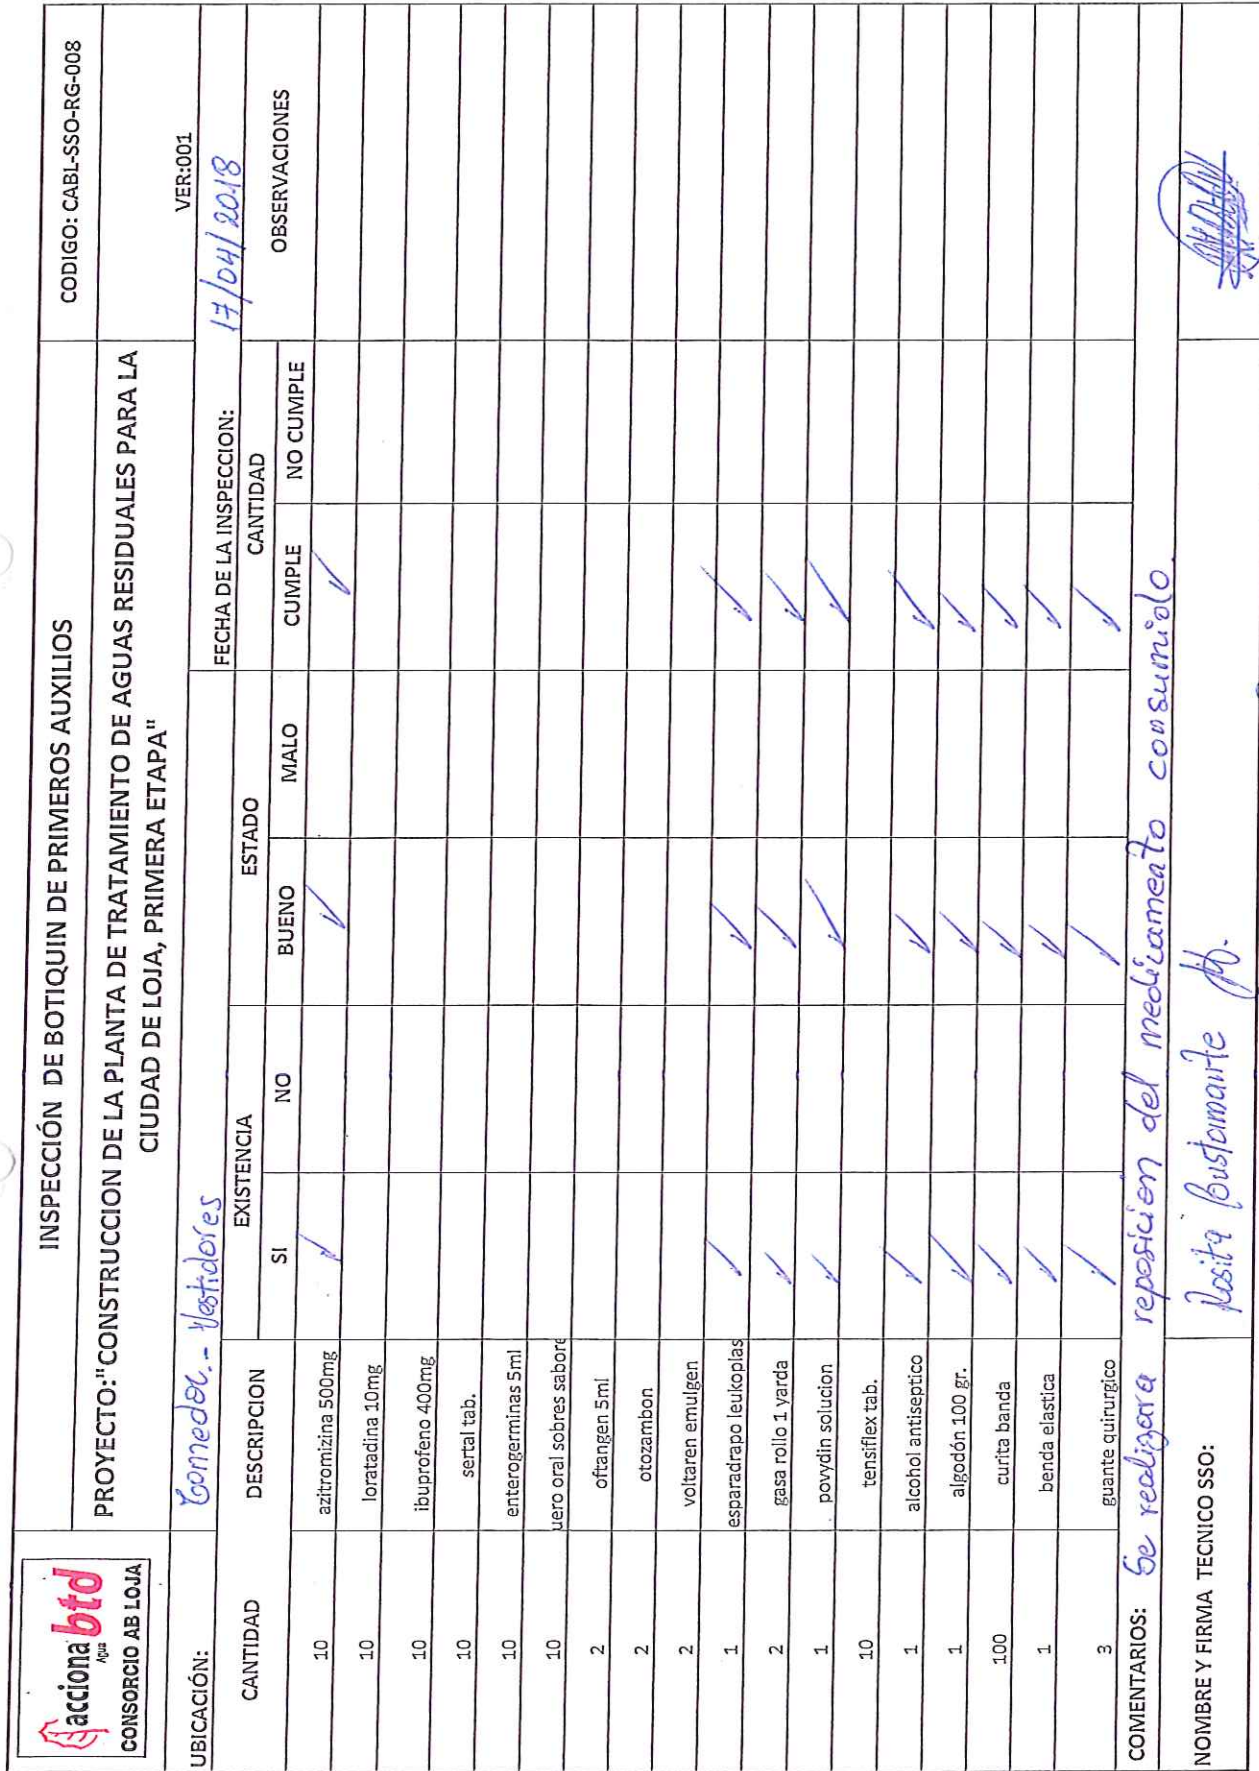 acciona btd
Agua
CONSORCIO AB LOJA
INSPECCIÓN DE BOTIQUIN DE PRIMEROS AUXILIOS
CODIGO: CABL-SSO-RG-008
PROYECTO:"CONSTRUCCION DE LA PLANTA DE TRATAMIENTO DE AGUAS RESIDUALES PARA LA
CIUDAD DE LOJA, PRIMERA ETAPA"
VER:001
UBICACIÓN: Comedor.- Vestidores FECHA DE LA INSPECCION: 17/04/2018
CANTIDAD DESCRIPCION EXISTENCIA ESTADO CANTIDAD OBSERVACIONES
SI NO BUENO MALO CUMPLE NO CUMPLE
10 azitromizina 500mg ✓ ✓ ✓
10 loratadina 10mg
10 ibuprofeno 400mg
10 sertal tab.
10 enterogerminas 5ml
10 uero oral sobres sabore
2 oftangen 5ml
2 otozambon
2 voltaren emulgen
1 esparadrapo leukoplas ✓ ✓ ✓
2 gasa rollo 1 yarda ✓ ✓ ✓
1 povydin solucion ✓ ✓ ✓
10 tensiflex tab.
1 alcohol antiseptico ✓ ✓ ✓
1 algodón 100 gr. ✓ ✓ ✓
100 curita banda ✓ ✓ ✓
1 benda elastica ✓ ✓ ✓
3 guante quirurgico ✓ ✓ ✓
COMENTARIOS: Se realizara reposicion del medicamento consumido.
NOMBRE Y FIRMA TECNICO SSO: Rosita Bustamante